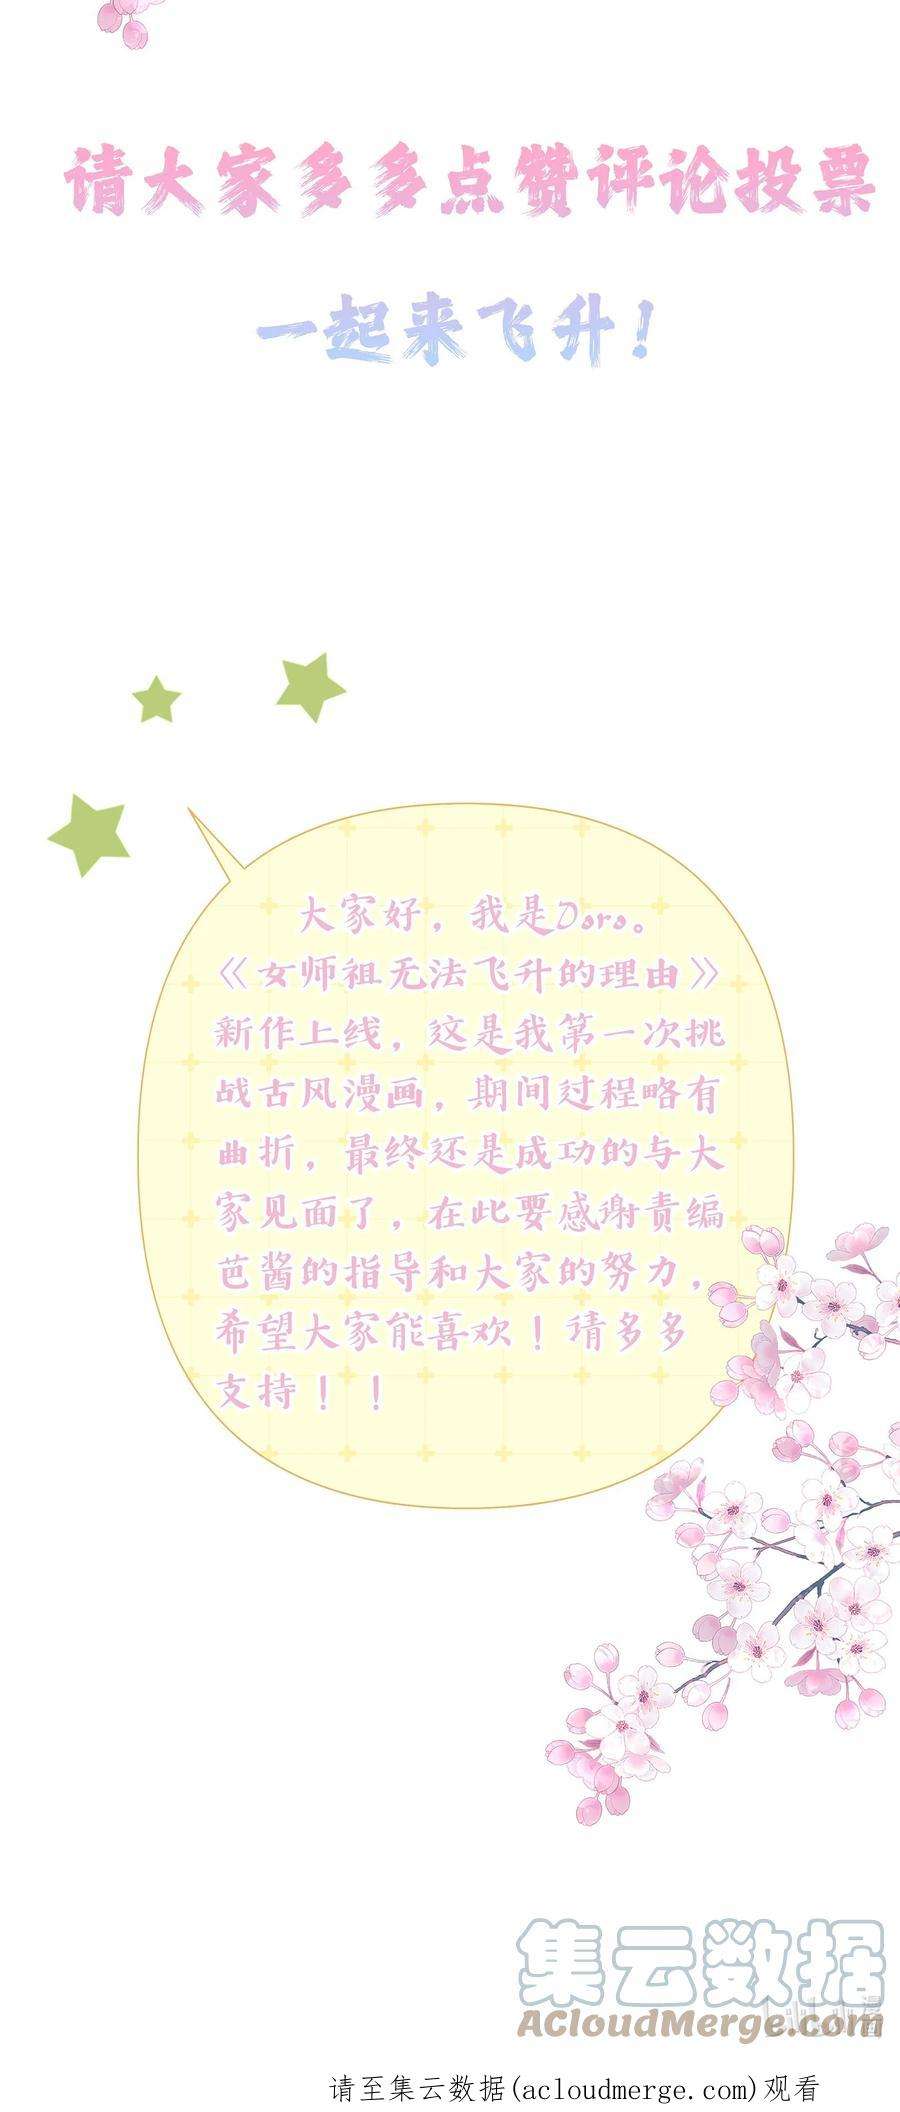 请大家多多点赞评论投票
一起来飞升！
大家好，我是Doro。
《女师祖无法飞升的理由》
新作上线，这是我第一次挑
战古风漫画，期间过程略有
曲折，最终还是成功的与大
家见面了，在此要感谢责编
芭酱的指导和大家的努力，
希望大家能喜欢！请多多
支持！！
集云数据
ACloudMerge.com
漫画
请至集云数据(acloudmerge.com)观看